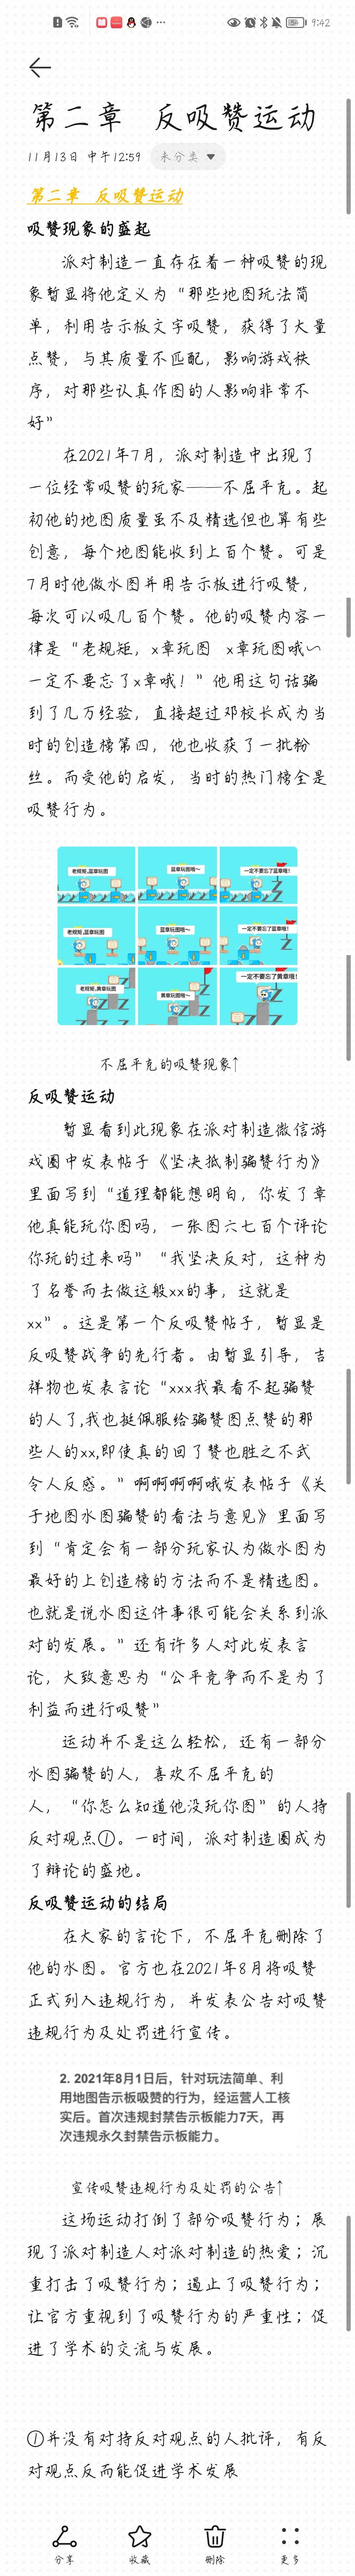 9:42
第二章 反吸赞运动
11月13日 中午12:59 未分类
第二章 反吸赞运动
吸赞现象的盛起
派对制造一直存在着一种吸赞的现
象暂显将他定义为“那些地图玩法简
单，利用告示板文字吸赞，获得了大量
点赞，与其质量不匹配，影响游戏秩
序，对那些认真作图的人影响非常不
好”
在2021年7月，派对制造中出现了
一位经常吸赞的玩家——不屈平克。起
初他的地图质量虽不及精选但也算有些
创意，每个地图能收到上百个赞。可是
7月时他做水图并用告示板进行吸赞，
每次可以吸几百个赞。他的吸赞内容一
律是“老规矩，x章玩图 x章玩图哦～
一定不要忘了x章哦！”他用这句话骗
到了几万经验，直接超过邓校长成为当
时的创造榜第四，他也收获了一批粉
丝。而受他的启发，当时的热门榜全是
吸赞行为。
老规矩,蓝章玩图
蓝章玩图哦～
一定不要忘了蓝章哦!
老规矩,蓝章玩图
蓝章玩图哦～
一定不要忘了蓝章哦!
老规矩,黄章玩图
黄章玩图哦～
一定不要忘了黄章哦!
不屈平克的吸赞现象↑
反吸赞运动
暂显看到此现象在派对制造微信游
戏圈中发表帖子《坚决抵制骗赞行为》
里面写到“道理都能想明白，你发了章
他真能玩你图吗，一张图六七百个评论
你玩的过来吗”“我坚决反对，这种为
了名誉而去做这般xx的事，这就是
xx”。这是第一个反吸赞帖子，暂显是
反吸赞战争的先行者。由暂显引导，吉
祥物也发表言论“xxx我最看不起骗赞
的人了,我也挺佩服给骗赞图点赞的那
些人的xx,即使真的回了赞也胜之不武
令人反感。”啊啊啊啊哦发表帖子《关
于地图水图骗赞的看法与意见》里面写
到“肯定会有一部分玩家认为做水图为
最好的上创造榜的方法而不是精选图。
也就是说水图这件事很可能会关系到派
对的发展。”还有许多人对此发表言
论，大致意思为“公平竞争而不是为了
利益而进行吸赞”
运动并不是这么轻松，还有一部分
水图骗赞的人，喜欢不屈平克的
人，“你怎么知道他没玩你图”的人持
反对观点①。一时间，派对制造圈成为
了辩论的盛地。
反吸赞运动的结局
在大家的言论下，不屈平克删除了
他的水图。官方也在2021年8月将吸赞
正式列入违规行为，并发表公告对吸赞
违规行为及处罚进行宣传。
2. 2021年8月1日后，针对玩法简单、利
用地图告示板吸赞的行为，经运营人工核
实后。首次违规封禁告示板能力7天，再
次违规永久封禁告示板能力。
宣传吸赞违规行为及处罚的公告↑
这场运动打倒了部分吸赞行为；展
现了派对制造人对派对制造的热爱；沉
重打击了吸赞行为；遏止了吸赞行为；
让官方重视到了吸赞行为的严重性；促
进了学术的交流与发展。
①并没有对持反对观点的人批评，有反
对观点反而能促进学术发展
分享 收藏 删除 更多